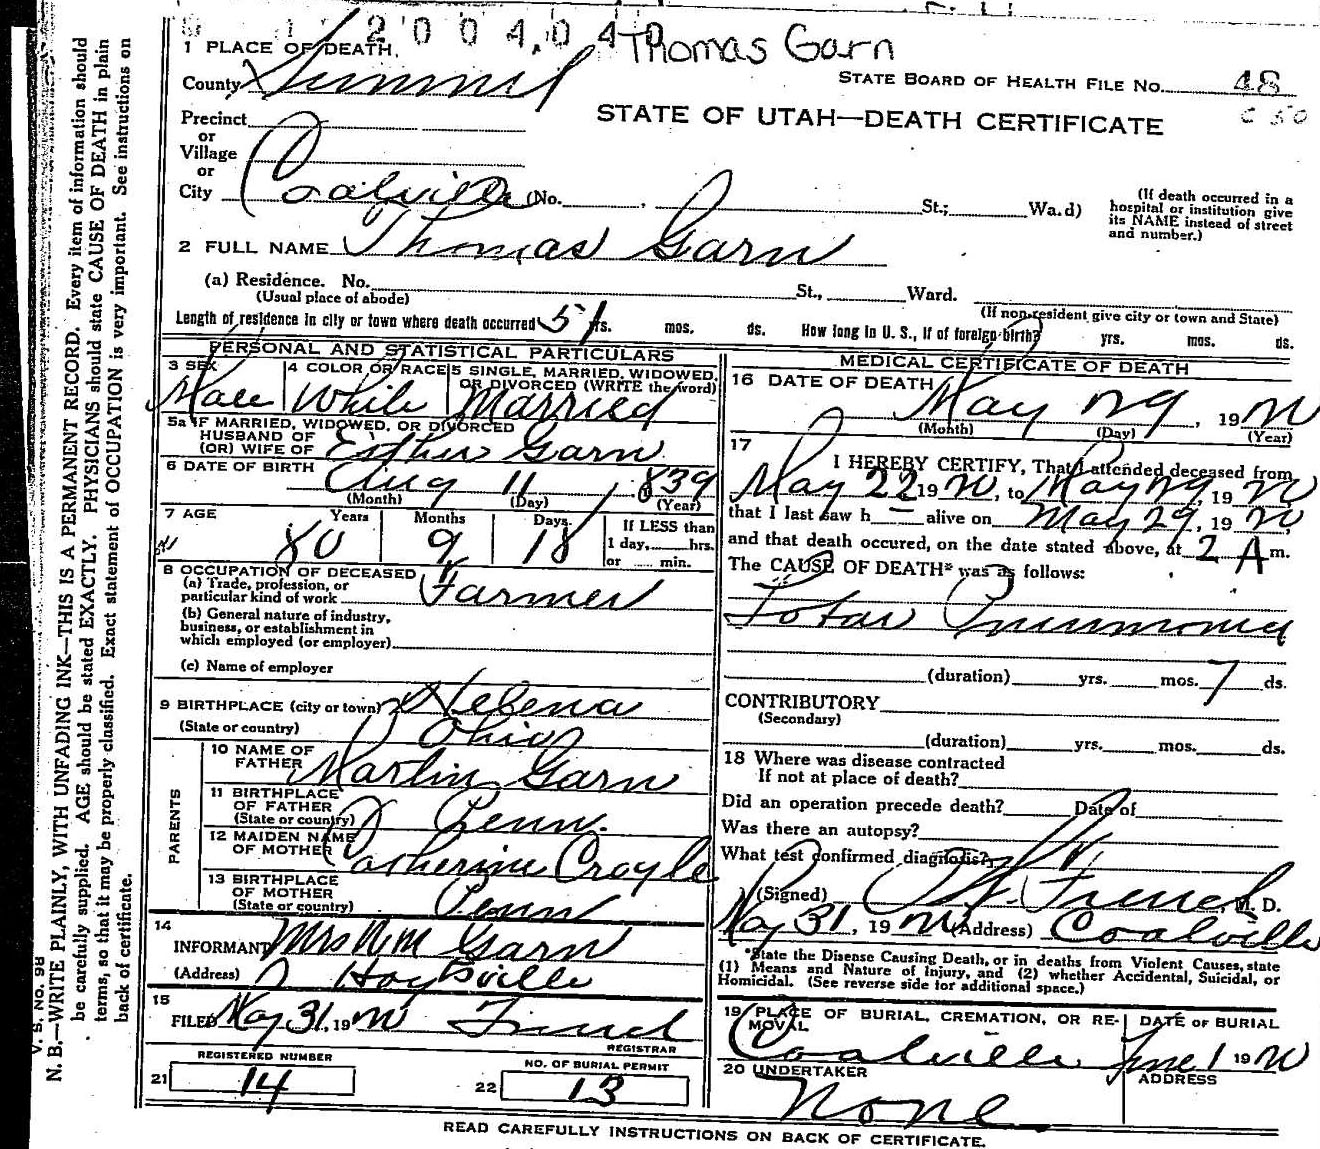 2004040
Thomas Garn
1 PLACE OF DEATH.
County Summit
STATE BOARD OF HEALTH FILE No. 48
STATE OF UTAH—DEATH CERTIFICATE
Precinct
or
Village
or
City Coalville No. , St.; Wa.d)
(If death occurred in a hospital or institution give its NAME instead of street and number.)
2 FULL NAME Thomas Garn
(a) Residence. No. St., Ward.
(Usual place of abode)
(If non-resident give city or town and State)
Length of residence in city or town where death occurred 51 yrs. mos. ds. How long in U. S., if of foreign birth? yrs. mos. ds.
PERSONAL AND STATISTICAL PARTICULARS
3 SEX Male
4 COLOR OR RACE White
5 SINGLE, MARRIED, WIDOWED, OR DIVORCED (WRITE the word) Married
5a IF MARRIED, WIDOWED, OR DIVORCED
HUSBAND OF
(OR) WIFE OF Esther Garn
6 DATE OF BIRTH Aug 11 1839
(Month) (Day) (Year)
7 AGE Years Months Days If LESS than
80 9 18 1 day, hrs.
or min.
8 OCCUPATION OF DECEASED
(a) Trade, profession, or
particular kind of work Farmer
(b) General nature of industry,
business, or establishment in
which employed (or employer)
(c) Name of employer
9 BIRTHPLACE (city or town) Helena
(State or country) Ohio
PARENTS
10 NAME OF FATHER Martin Garn
11 BIRTHPLACE OF FATHER
(State or country) Penn.
12 MAIDEN NAME OF MOTHER Catherine Croyle
13 BIRTHPLACE OF MOTHER
(State or country) Penn
14
INFORMANT Mrs Wm Garn
(Address) Hoytsville
15
FILED May 31, 1920 French
REGISTRAR
REGISTERED NUMBER
21 14
NO. OF BURIAL PERMIT
22 13
MEDICAL CERTIFICATE OF DEATH
16 DATE OF DEATH May 29, 1920
(Month) (Day) (Year)
17
I HEREBY CERTIFY, That I attended deceased from
May 22 1920, to May 29, 1920
that I last saw h alive on May 29, 1920,
and that death occured, on the date stated above, at 2 A m.
The CAUSE OF DEATH* was as follows:
Lobar Pneumonia
(duration) yrs. mos. 7 ds.
CONTRIBUTORY
(Secondary)
(duration) yrs. mos. ds.
18 Where was disease contracted
If not at place of death?
Did an operation precede death? Date of
Was there an autopsy?
What test confirmed diagnosis?
(Signed) French, M. D.
May 31, 1920 (Address) Coalville
*State the Disease Causing Death, or in deaths from Violent Causes, state
(1) Means and Nature of Injury, and (2) whether Accidental, Suicidal, or
Homicidal. (See reverse side for additional space.)
19 PLACE OF BURIAL, CREMATION, OR REMOVAL
Coalville
DATE OF BURIAL
June 1 1920
20 UNDERTAKER
None
ADDRESS
READ CAREFULLY INSTRUCTIONS ON BACK OF CERTIFICATE.
V. S. No. 98
N. B.—WRITE PLAINLY, WITH UNFADING INK—THIS IS A PERMANENT RECORD. Every item of information should
be carefully supplied. AGE should be stated EXACTLY. PHYSICIANS should state CAUSE OF DEATH in plain
terms, so that it may be properly classified. Exact statement of OCCUPATION is very important. See instructions on
back of certificate.